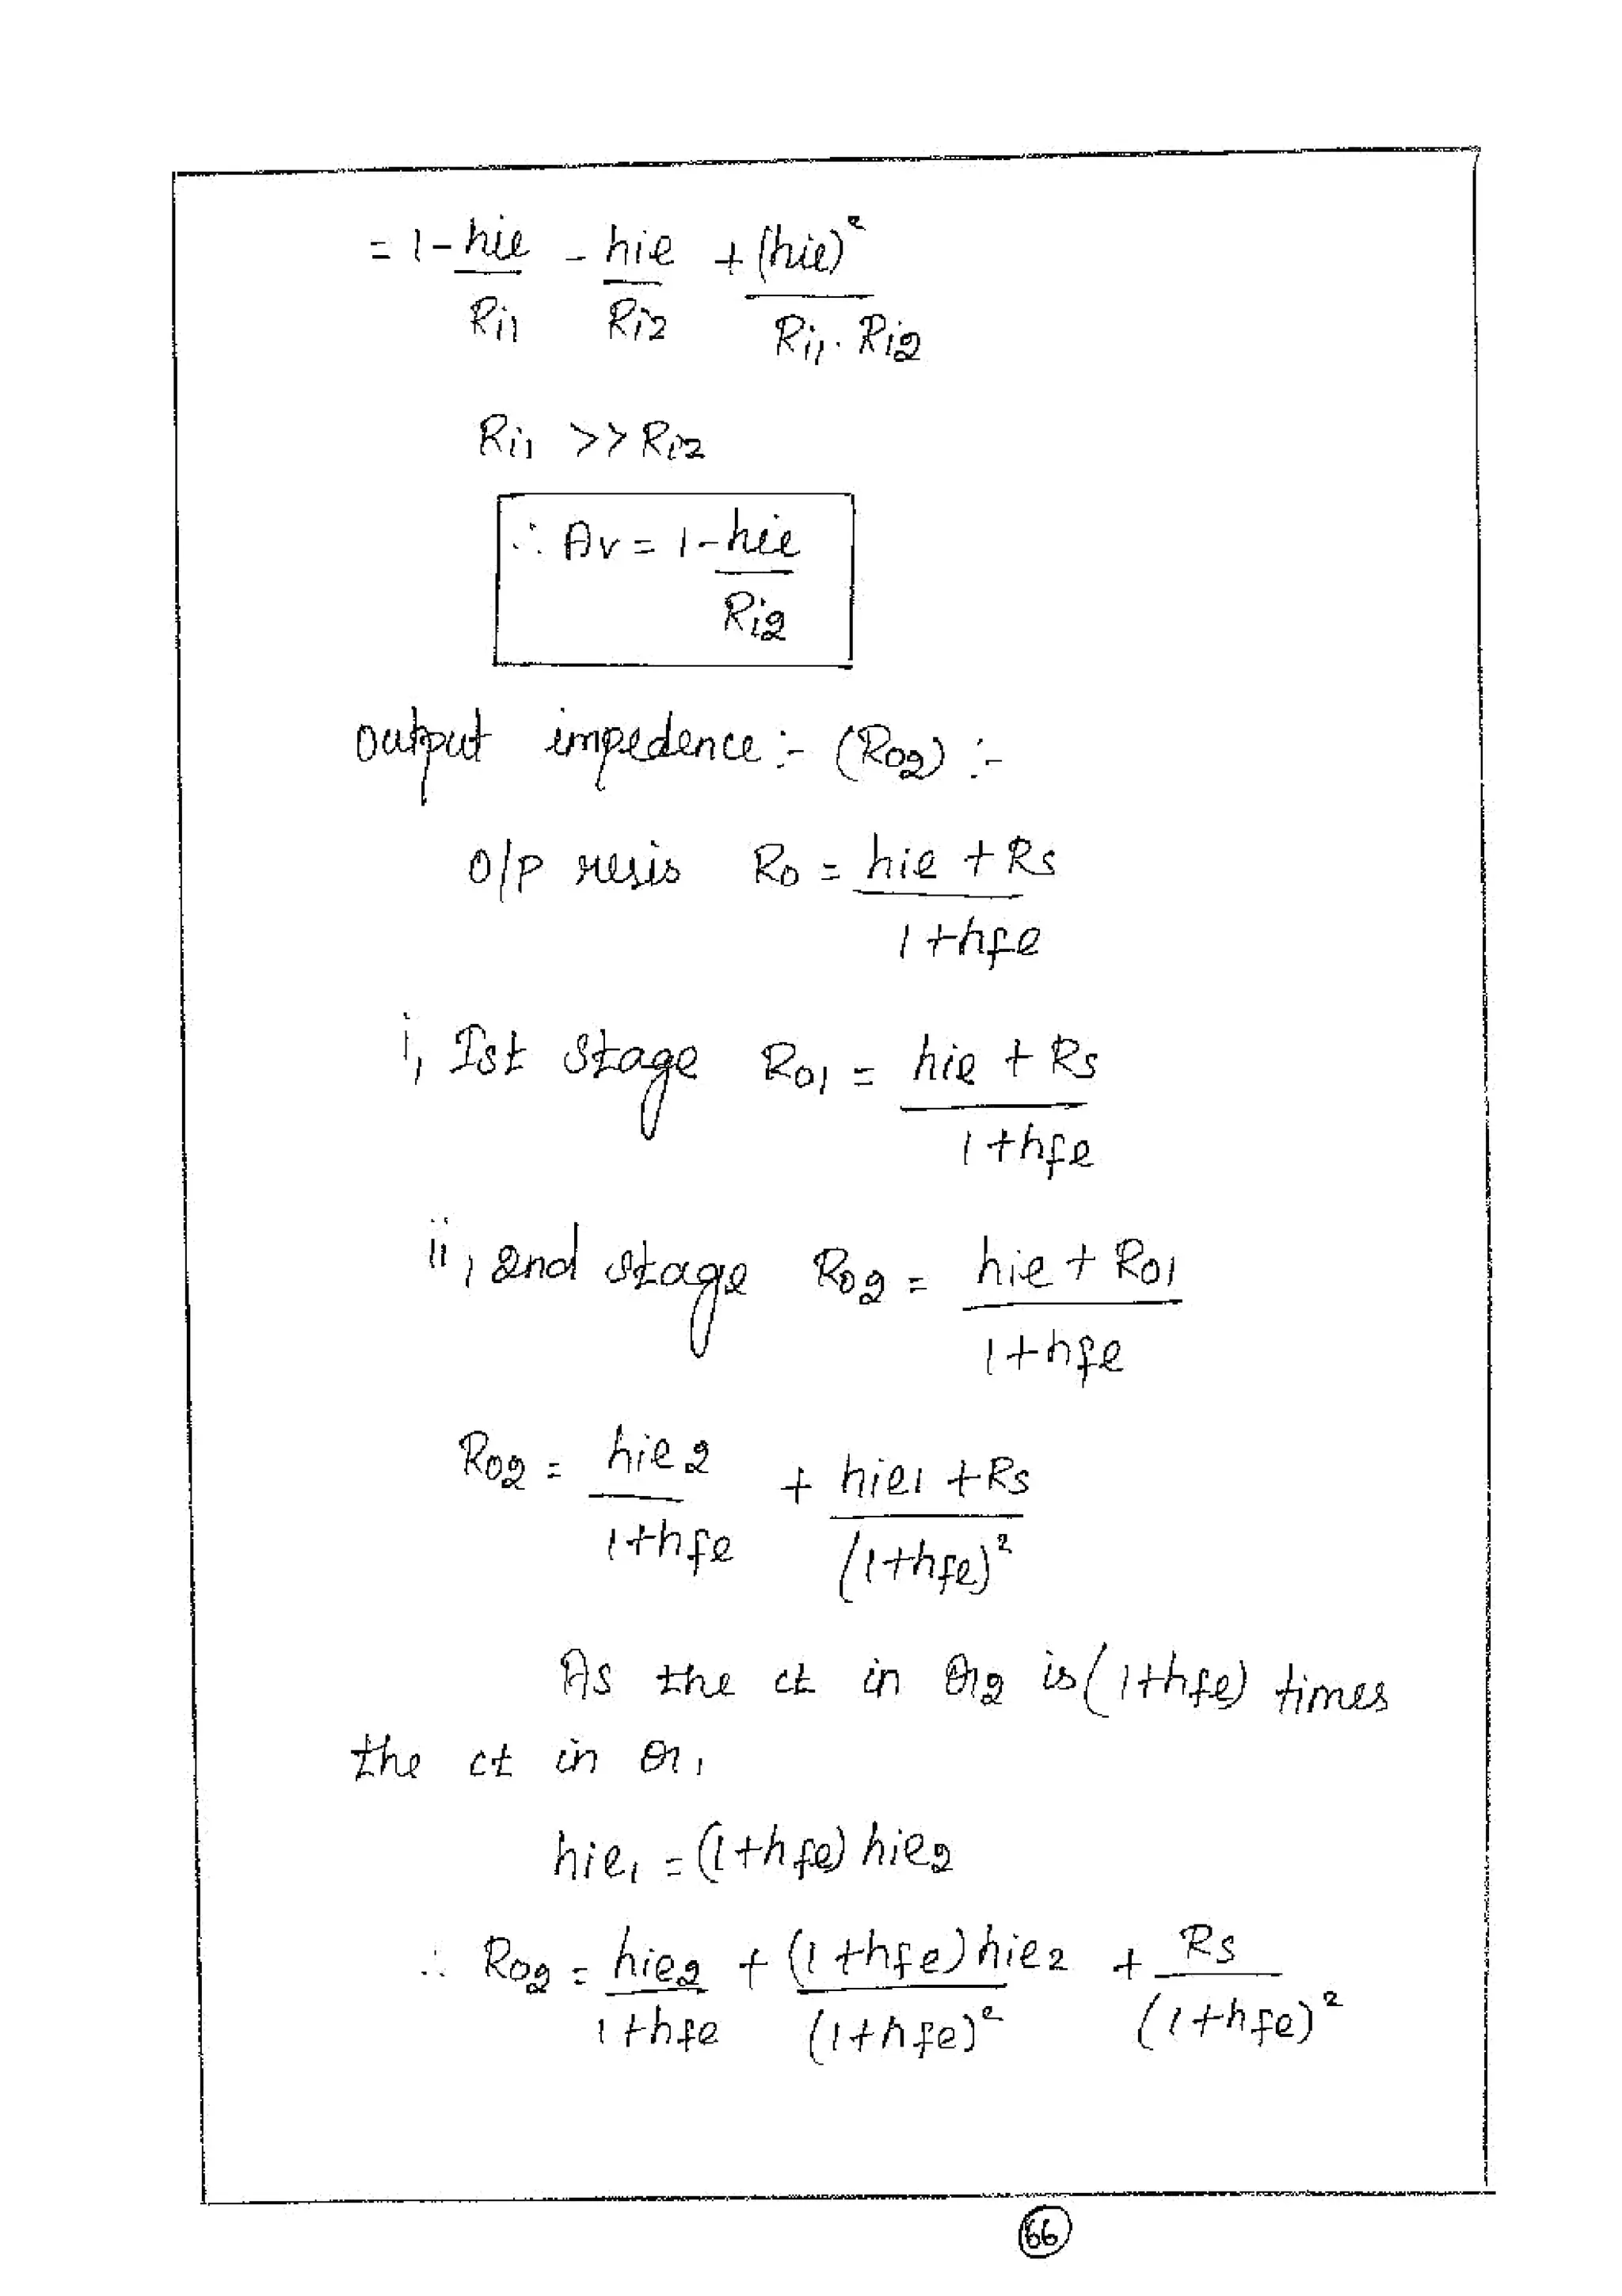 = 1 - hie/Ri1 - hie/Ri2 + (hie)²/Ri1 · Ri2
Ri1 >> Ri2
∴ Av = 1 - hie/Ri2
output impedence :- (Ro2) :-
o/p resis Ro = hie + Rs/1 + hfe
i, Ist stage Ro1 = hie + Rs/1 + hfe
ii, 2nd stage Ro2 = hie + Ro1/1 + hfe
Ro2 = hie2/1 + hfe + hie1 + Rs/(1 + hfe)²
As the ct in Q2 is (1 + hfe) times
the ct in Q1
hie1 = (1 + hfe) hie2
∴ Ro2 = hie2/1 + hfe + (1 + hfe) hie2/(1 + hfe)² + Rs/(1 + hfe)²
66